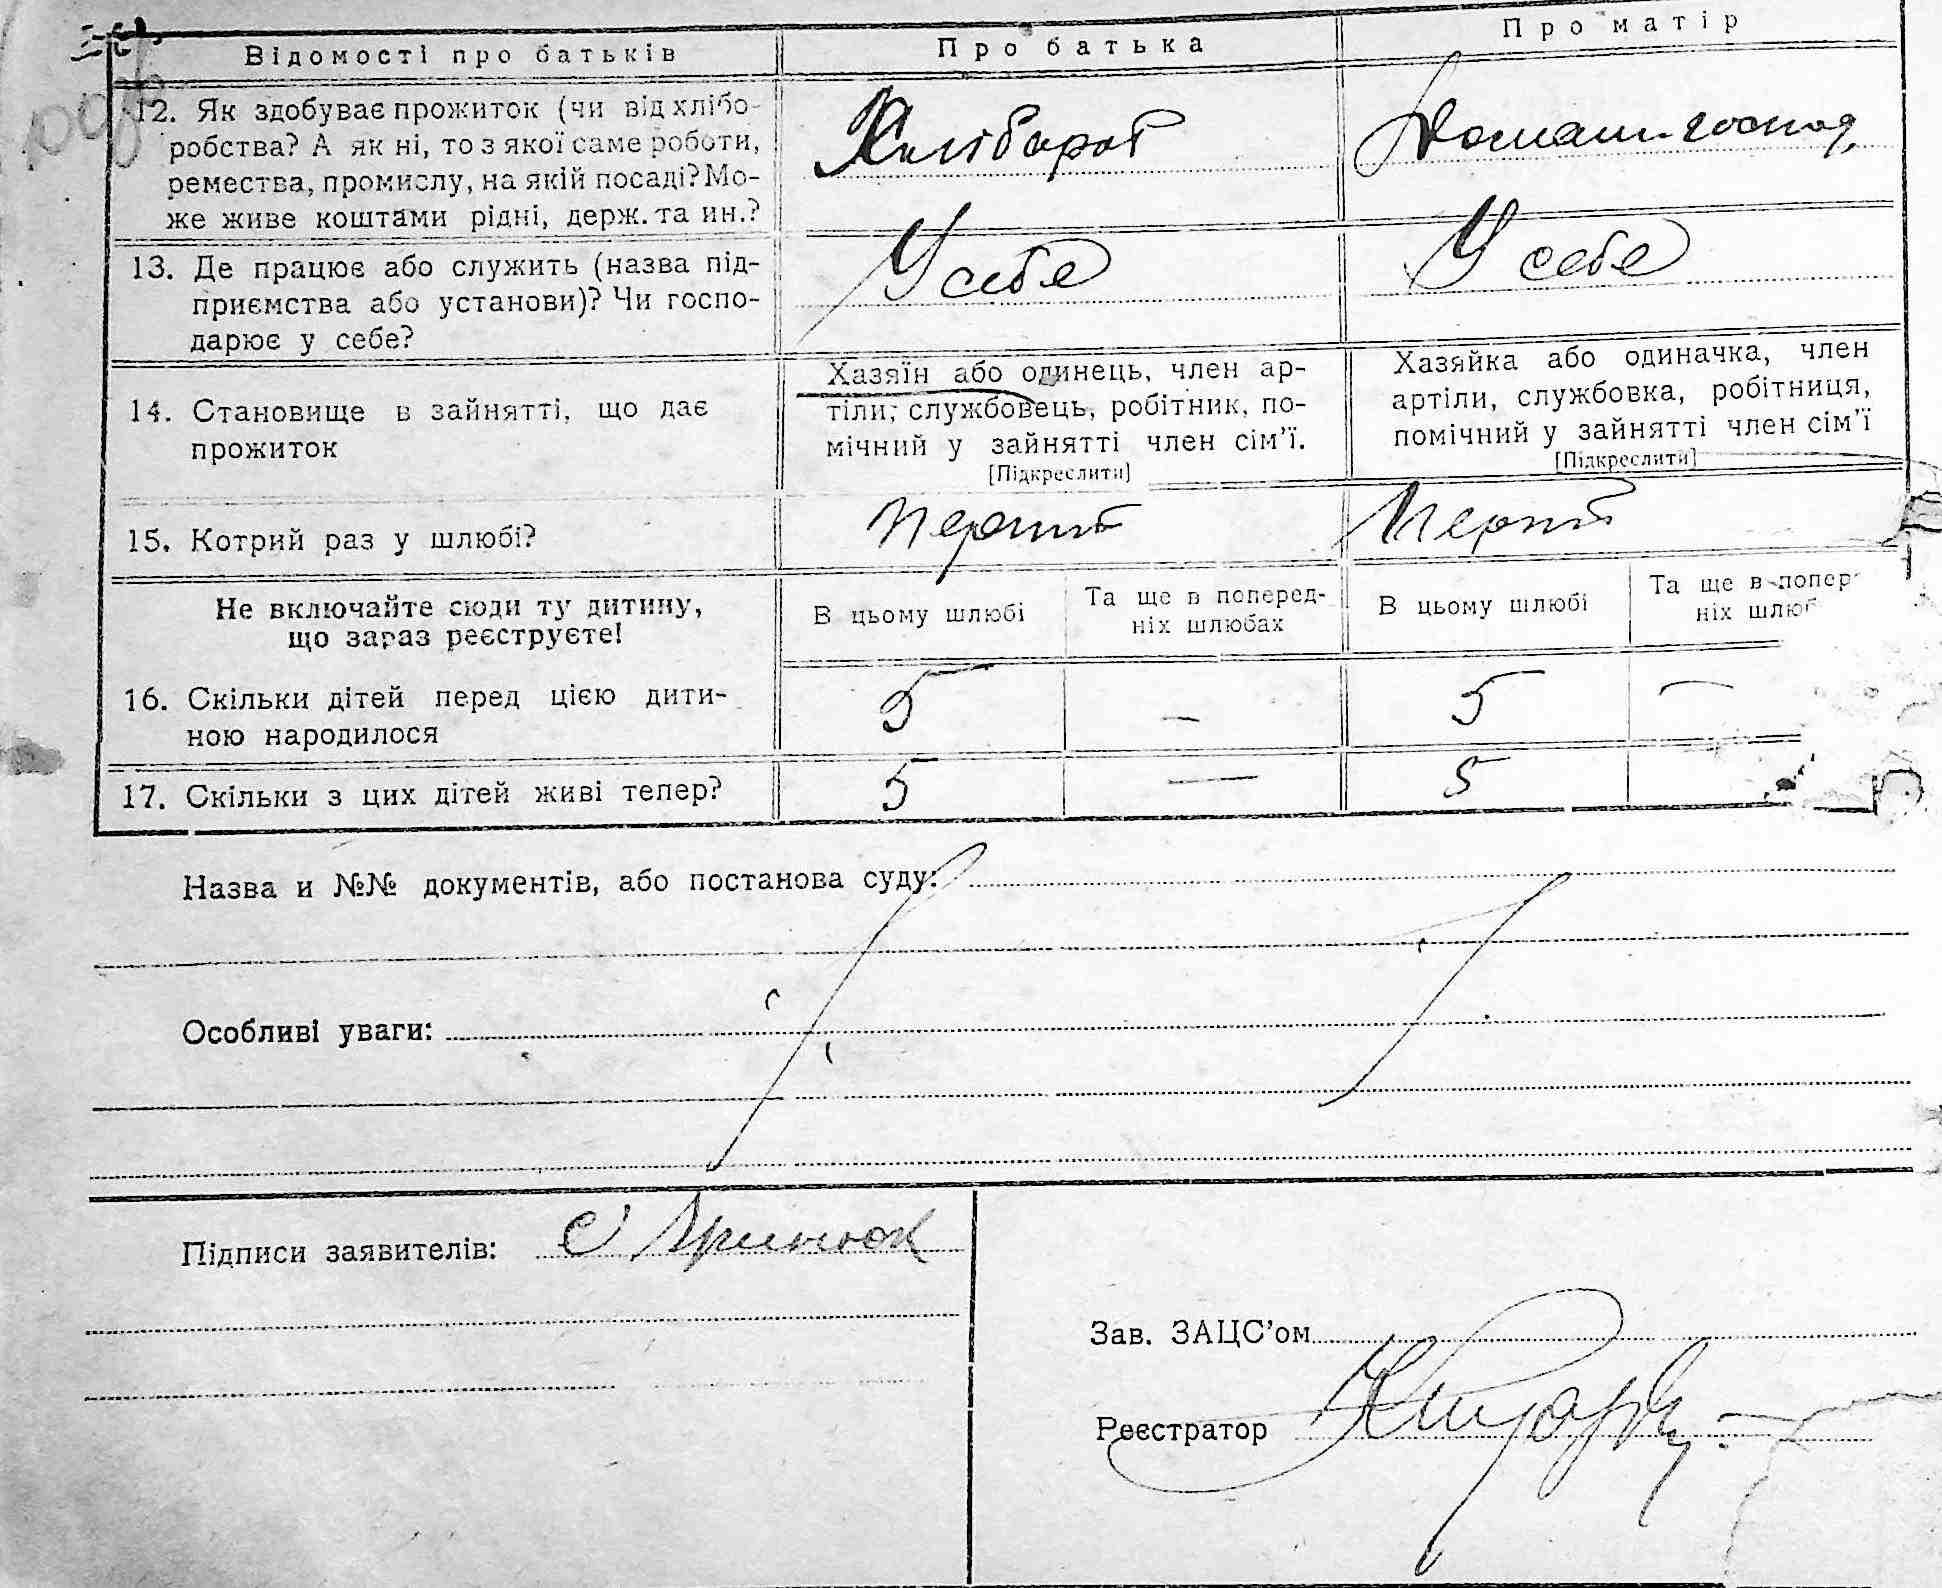 Відомості про батьків
Про батька
Про матір
12. Як здобуває прожиток (чи від хлібо-
робства? А як ні, то з якої саме роботи,
ремества, промислу, на якій посаді? Мо-
же живе коштами рідні, держ. та ин.?
Хлібороб
Домашн. господ.
13. Де працює або служить (назва під-
приємства або установи)? Чи госпо-
дарює у себе?
У себе
У себе
14. Становище в зайнятті, що дає
прожиток
Хазяїн або одинець, член ар-
тіли, службовець, робітник, по-
мічний у зайнятті член сім'ї.
[Підкреслити]
Хазяйка або одиначка, член
артіли, службовка, робітниця,
помічний у зайнятті член сім'ї
[Підкреслити]
15. Котрий раз у шлюбі?
Перший
Не включайте сюди ту дитину,
що зараз реєструєте!
В цьому шлюбі
Та ще в поперед-
ніх шлюбах
В цьому шлюбі
Та ще в попер
ніх шлюб
16. Скільки дітей перед цією дити-
ною народилося
5 — 5 —
17. Скільки з цих дітей живі тепер?
5 — 5
Назва и №№ документів, або постанова суду:
Особливі уваги:
Підписи заявителів:
Зав. ЗАЦС'ом
Реєстратор